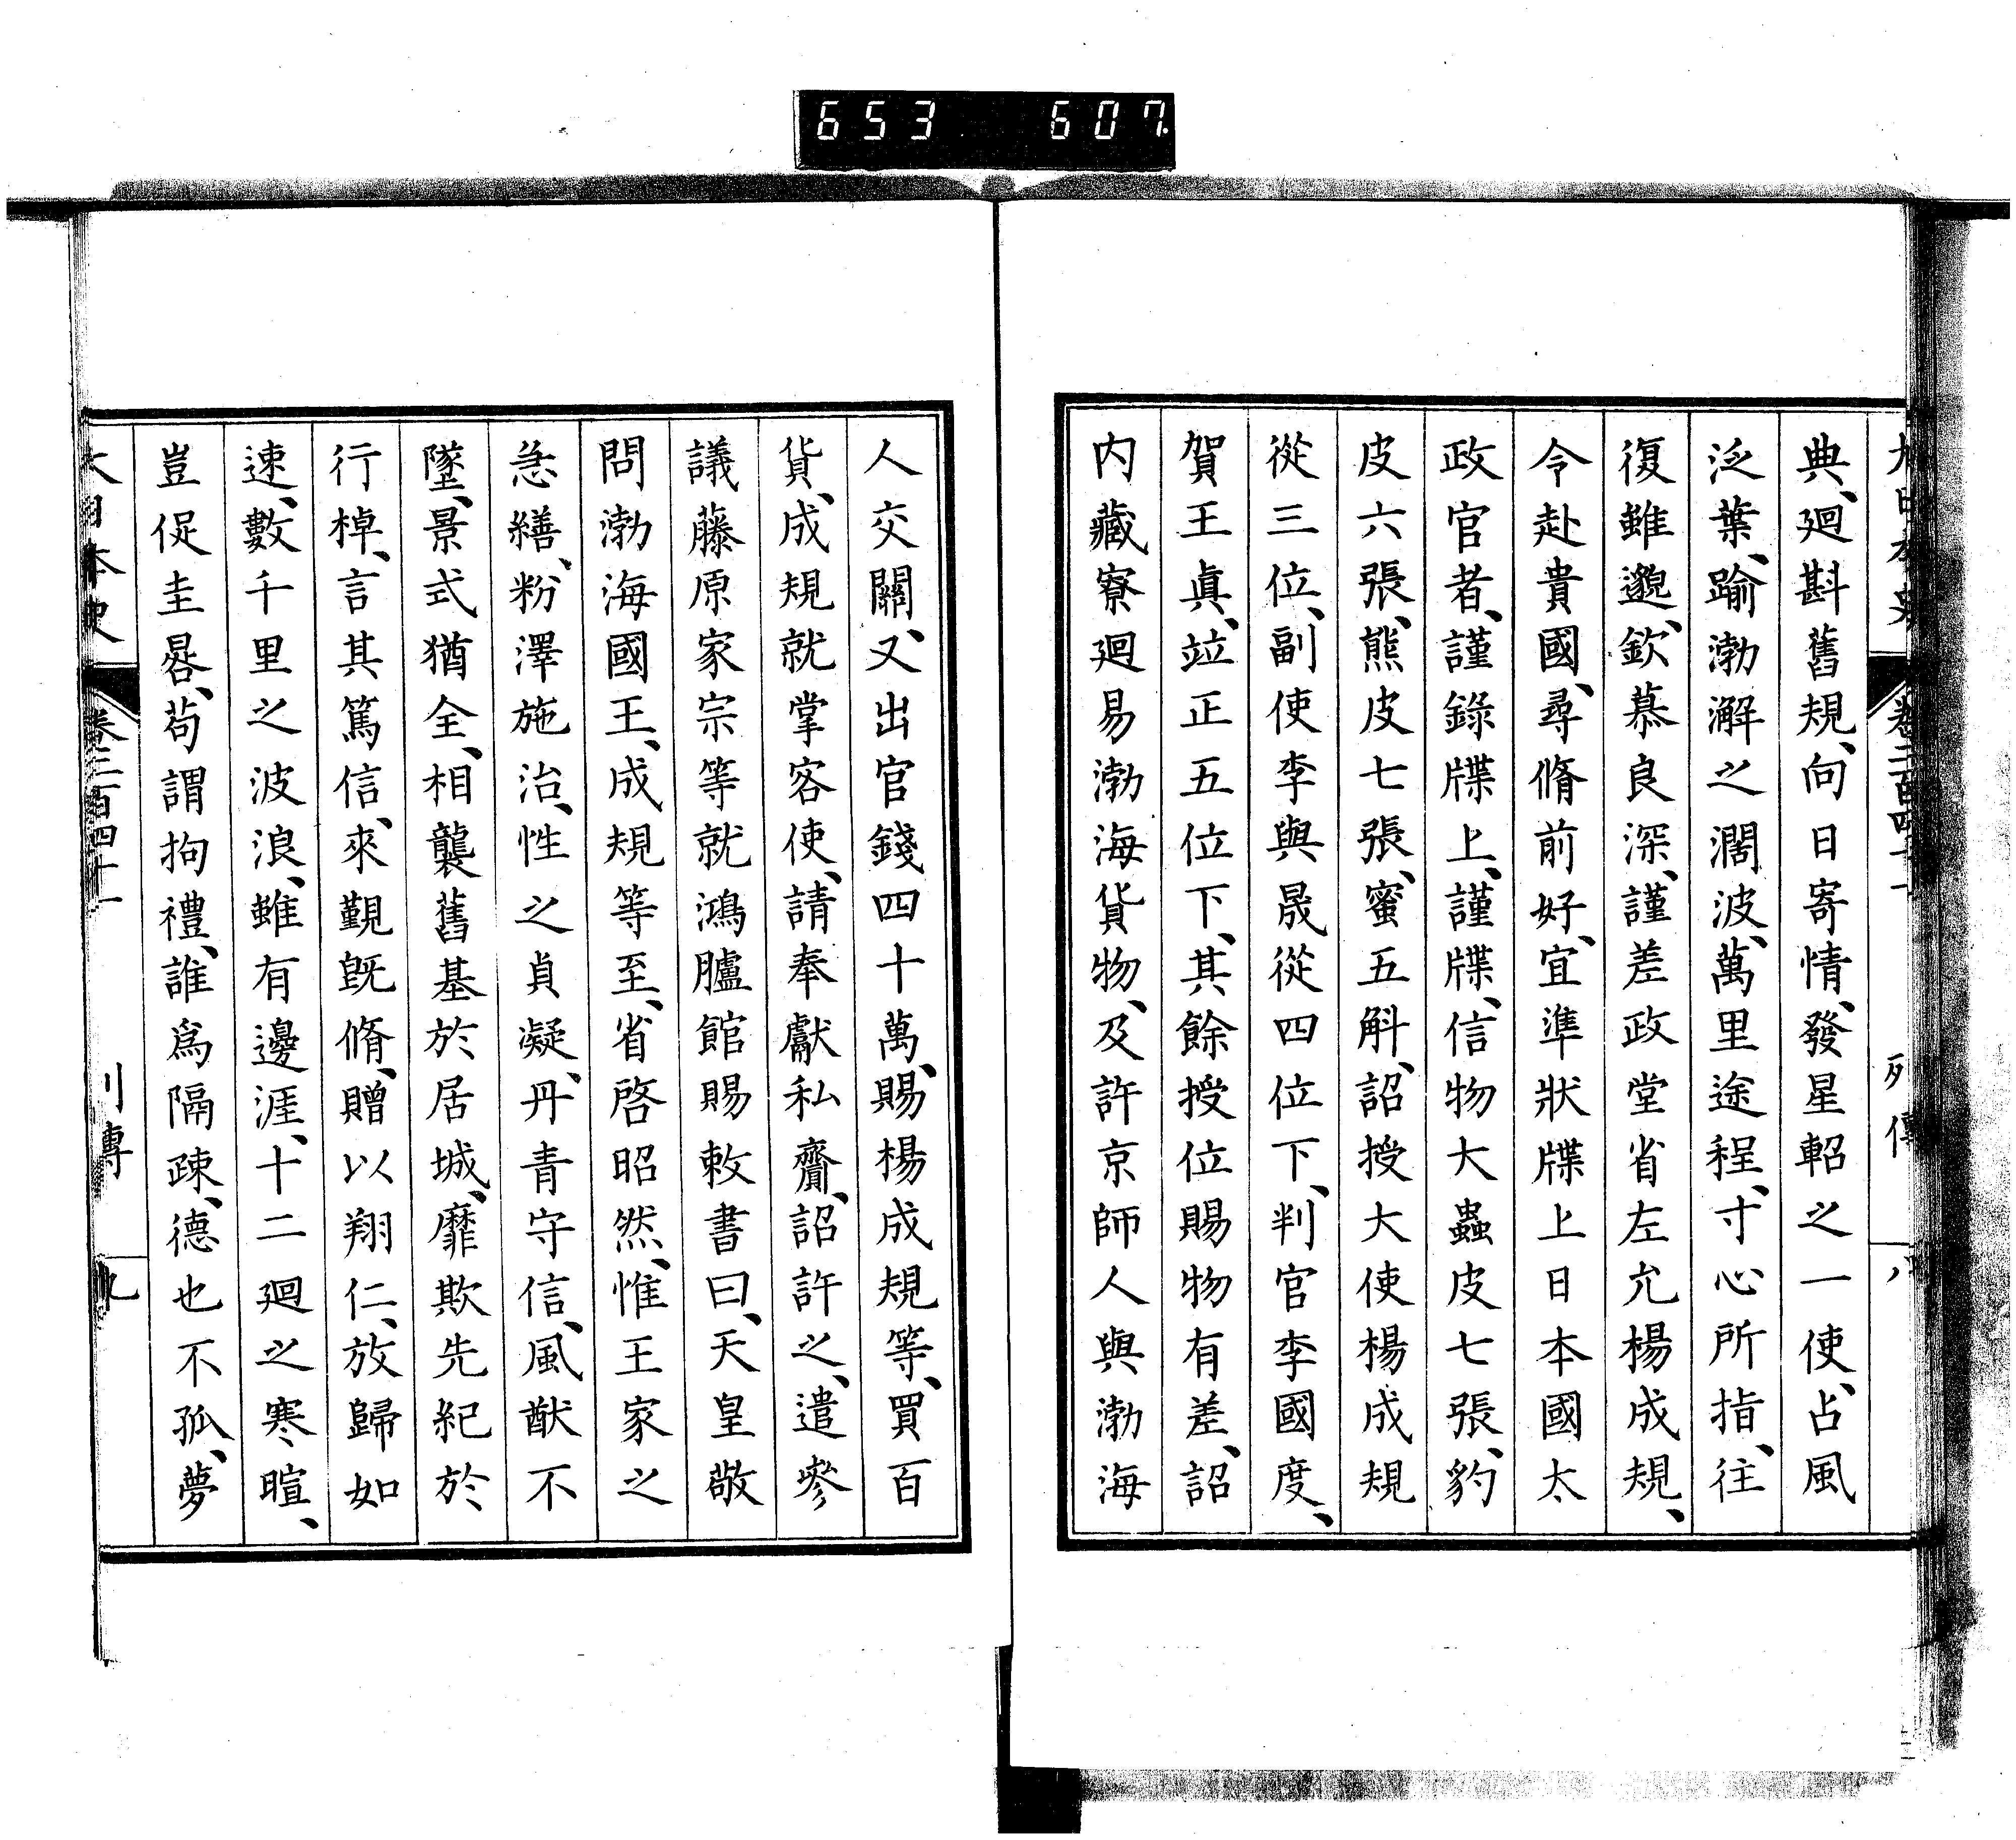 653 607
大日本史 卷二百四十一 列傳 八
典、廻斟舊規、向日寄情、發星軺之一使、占風
泛葉、踰渤澥之濶波、萬里途程、寸心所指、往
復雖邈、欽慕良深、謹差政堂省左允楊成規、
令赴貴國、尋脩前好、宜準狀牒上日本國太
政官者、謹錄牒上、謹牒、信物大蟲皮七張、豹
皮六張、熊皮七張、蜜五斛、詔授大使楊成規
從三位、副使李與晟從四位下、判官李國度、
賀王眞、竝正五位下、其餘授位賜物有差、詔
内藏寮廻易渤海貨物、及許京師人與渤海
人交關、又出官錢四十萬、賜楊成規等、買百
貨、成規就掌客使、請奉獻私齎、詔許之、遣參
議藤原家宗等就鴻臚館賜敕書曰、天皇敬
問渤海國王、成規等至、省啓昭然、惟王家之
急繕、粉澤施治、性之貞凝、丹青守信、風猷不
墜、景式猶全、相襲舊基於居城、靡欺先紀於
行棹、言其篤信、來覲旣脩、贈以翔仁、放歸如
速、數千里之波浪、雖有邊涯、十二廻之寒暄、
豈促圭晷、苟謂拘禮、誰爲隔疎、德也不孤、夢
大日本史 卷二百四十一 列傳 九